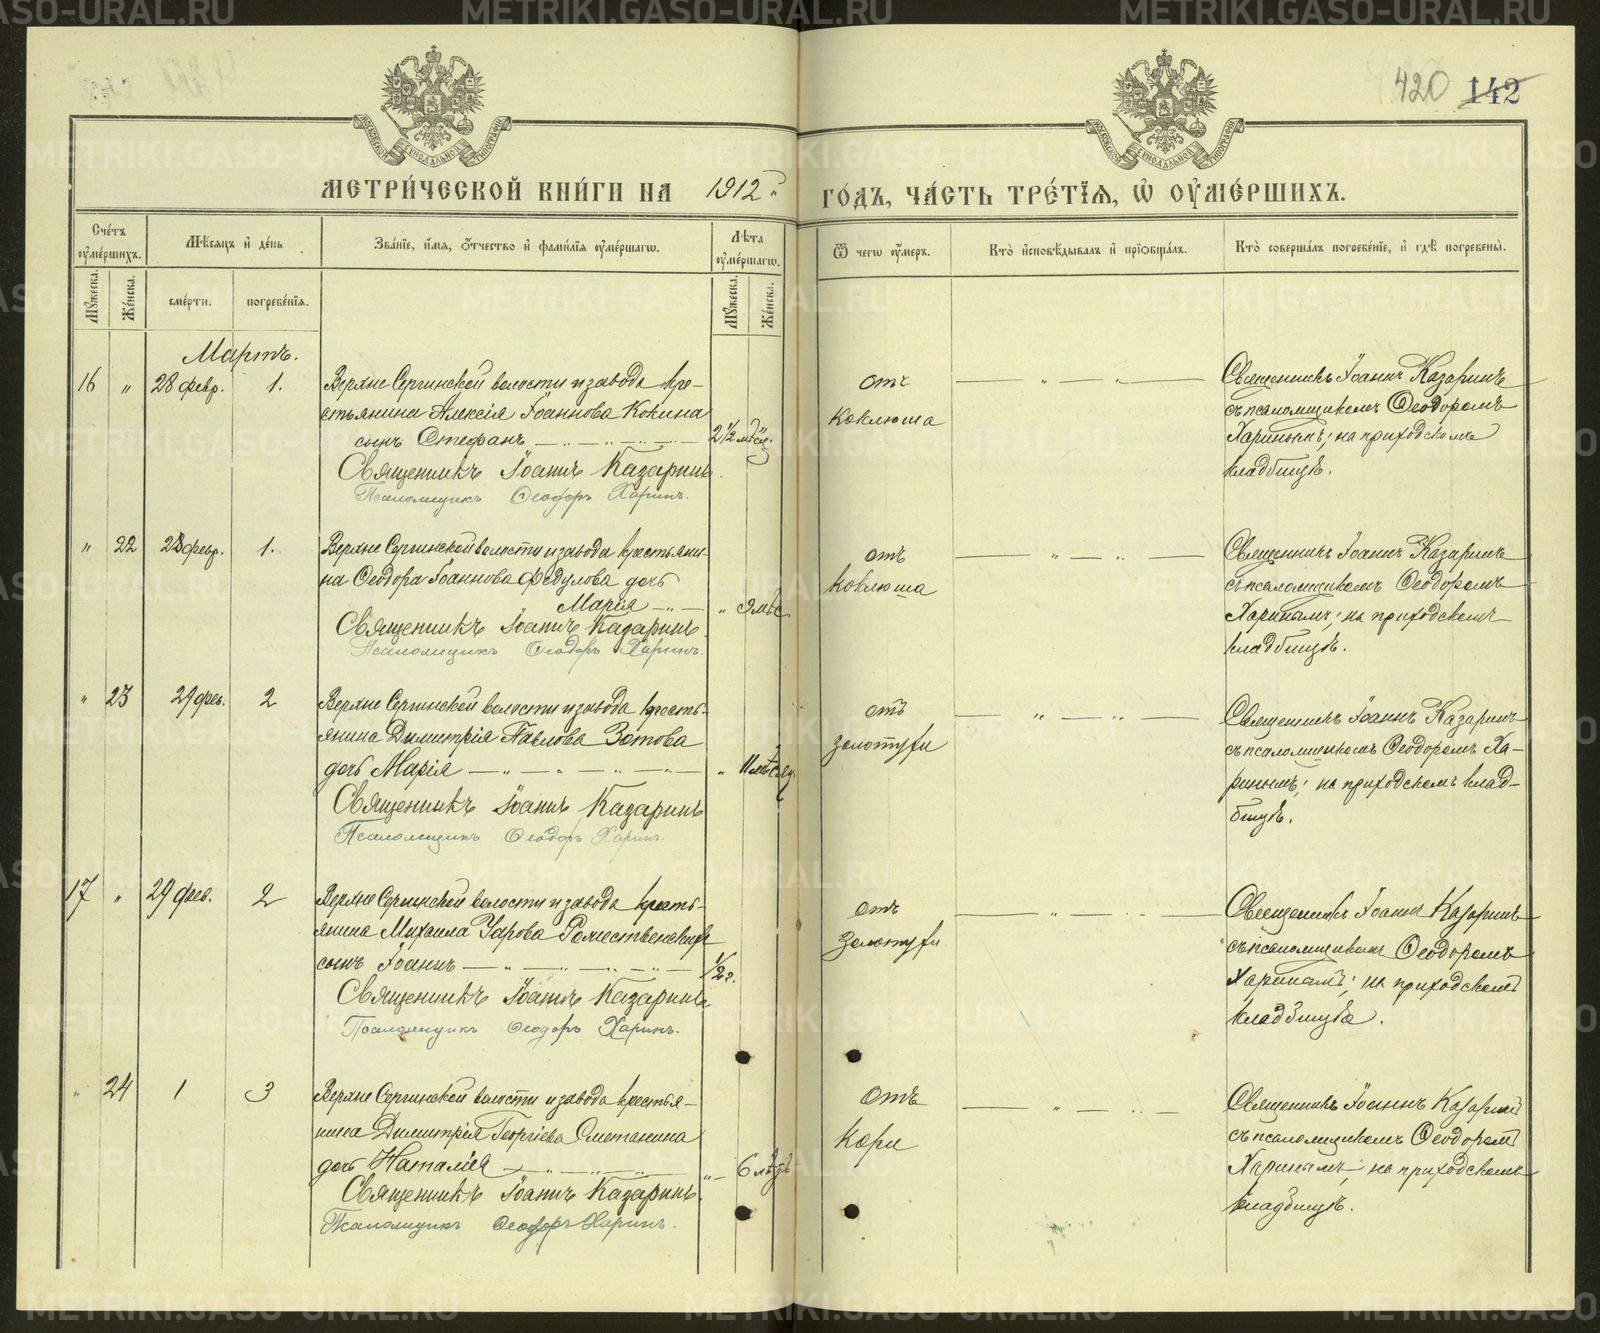 420 142
МОСКОВСКОЙ СѴНОДАЛЬНОЙ ТИПОГРАФІИ
МОСКОВСКОЙ СѴНОДАЛЬНОЙ ТИПОГРАФІИ
МЕТРИ́ЧЕСКОЙ КНИ́ГИ НА 1912 ГО́ДЪ, ЧА́СТЬ ТРЕ́ТІЯ, Ѡ҆ ОУ҆МЕ́РШИХЪ.
Сче́тъ оу҆ме́ршихъ.
Мꙋ́жеска. Же́нска.
Мѣ́сяцъ и҆ де́нь
сме́рти. погребе́нїя.
Зва́нїе, и҆́мя, ѻ҆́тчество и҆ фами́лїя оу҆ме́ршагѡ.
Лѣ́та оу҆ме́ршагѡ.
Мꙋ́жеска. Же́нска.
Ѿ чегѡ̀ оу҆́меръ.
Кто̀ и҆сповѣ́дывалъ и҆ прїѡбща́лъ.
Кто̀ соверша́лъ погребе́нїе, и҆ гдѣ̀ погребены̀.
Мартъ.
16 " 28 февр. 1.
Верхне Сергинской волости и завода кре-
стьянина Алексія Іоаннова Кокина
сынъ Стефанъ 2½ мѣся.
Священникъ Іоаннъ Казаринъ.
Псаломщикъ Ѳеодоръ Харинъ.
отъ
коклюша
Священникъ Іоаннъ Казаринъ
съ псаломщикомъ Ѳеодоромъ
Харинымъ; на приходскомъ
кладбищѣ.
" 22 28 февр. 1.
Верхне Сергинской волости и завода крестьяни-
на Ѳеодора Іоаннова Федулова дочь
Марія " 9 мѣс.
Священникъ Іоаннъ Казаринъ.
Псаломщикъ Ѳеодоръ Харинъ.
отъ
коклюша
Священникъ Іоаннъ Казаринъ
съ псаломщикомъ Ѳеодоромъ
Харинымъ; на приходскомъ
кладбищѣ.
" 23 29 фев. 2
Верхне Сергинской волости и завода кресть-
янина Димитрія Павлова Зотова
дочь Марія " 11 мѣсяц.
Священникъ Іоаннъ Казаринъ
Псаломщикъ Ѳеодоръ Харинъ.
отъ
золотухи
Священникъ Іоаннъ Казаринъ
съ псаломщикомъ Ѳеодоромъ Ха-
ринымъ; на приходскомъ клад-
бищѣ.
17 " 29 фев. 2
Верхне Сергинской волости и завода кресть-
янина Михаила Рожественскаго
сынъ Іоаннъ 1/2 г.
Священникъ Іоаннъ Казаринъ
Псаломщикъ Ѳеодоръ Харинъ.
отъ
Золотухи
Священникъ Іоаннъ Казаринъ
съ псаломщикомъ Ѳеодоромъ
Харинымъ; на приходскомъ
кладбищѣ.
" 24 1 3
Верхне Сергинской волости и завода крестья-
нина Димитрія Георгіева Сметанина
дочь Наталія " 6 мѣс
Священникъ Іоаннъ Казаринъ.
Псаломщикъ Ѳеодоръ Харинъ.
отъ
Кори
Священникъ Іоаннъ Казаринъ
съ псаломщикомъ Ѳеодоромъ
Харинымъ; на приходскомъ
кладбищѣ.
METRIKI.GASO-URAL.RU